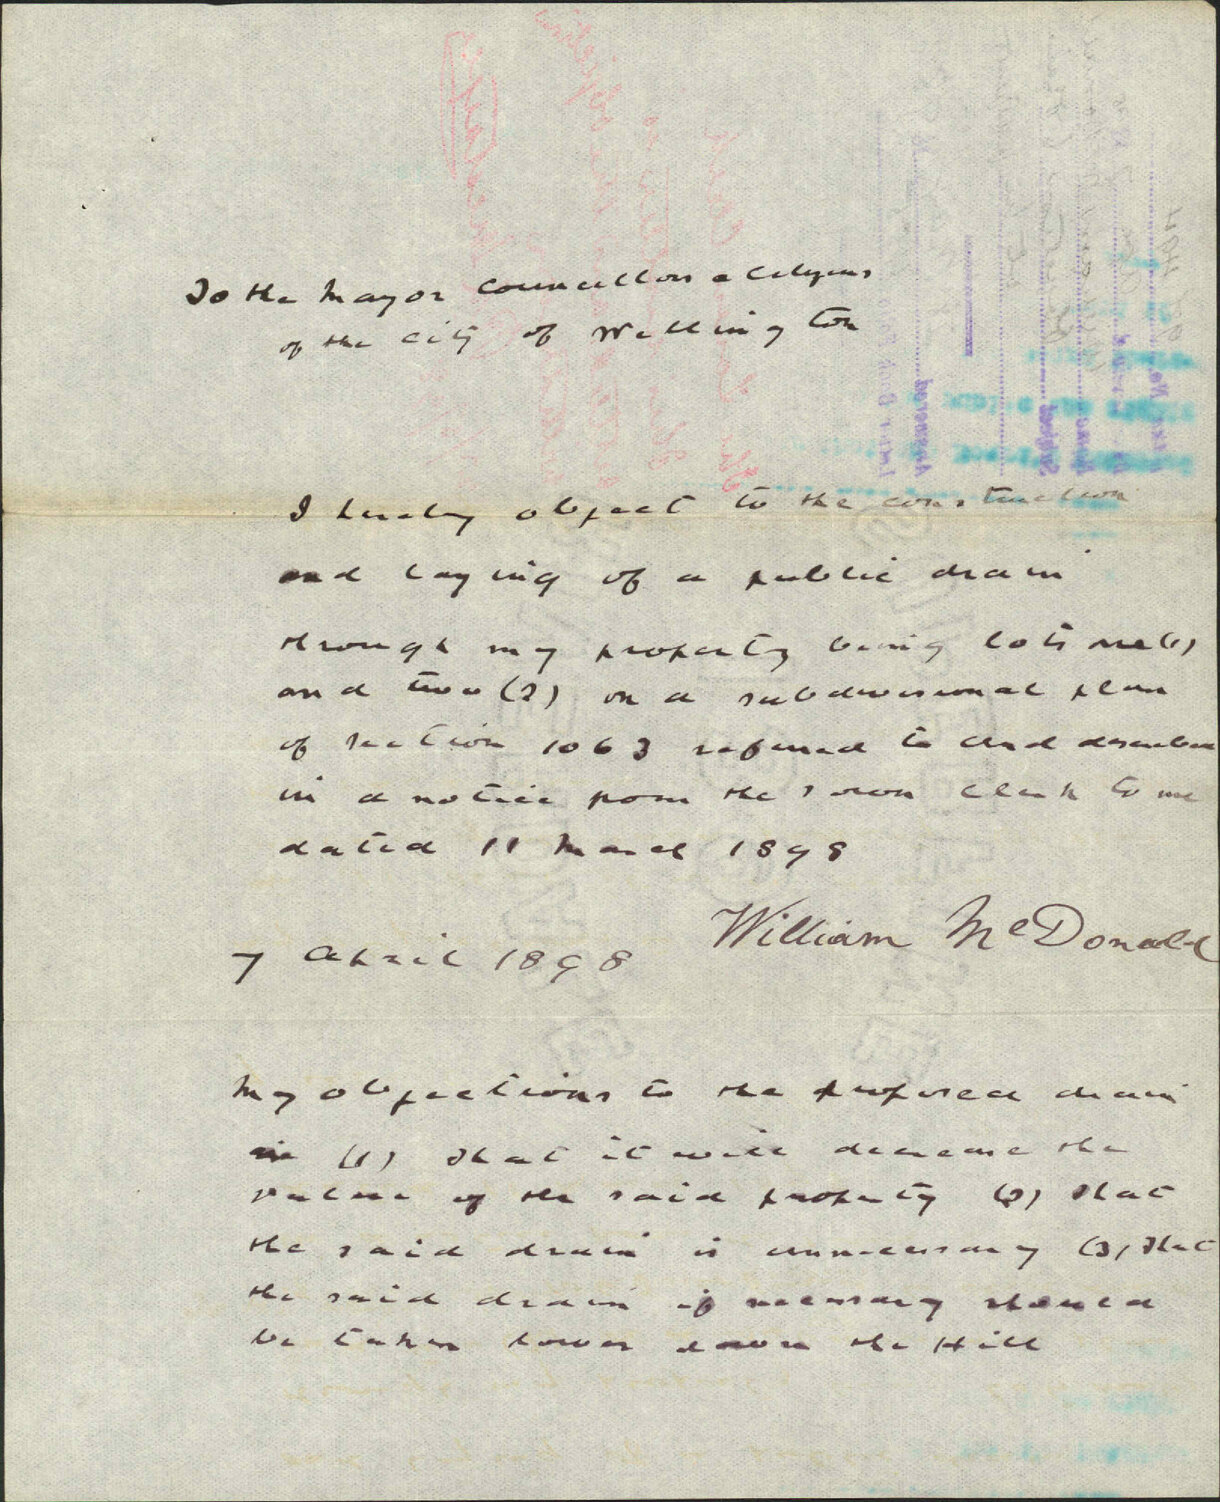 To the Mayor Councillors & Citizens
of the City of Wellington
I hereby object to the construction
and laying of a public drain
through my property being lots one (1)
and two (2) on a subdivisional plan
of section 1063 referred to and described
in a notice from the Town Clerk to me
dated 11 March 1898
William McDonald
7 April 1898
My objections to the proposed drain
is (1) That it will decrease the
value of the said property (2) That
the said drain is unnecessary (3) That
the said drain if necessary should
be taken lower down the Hill